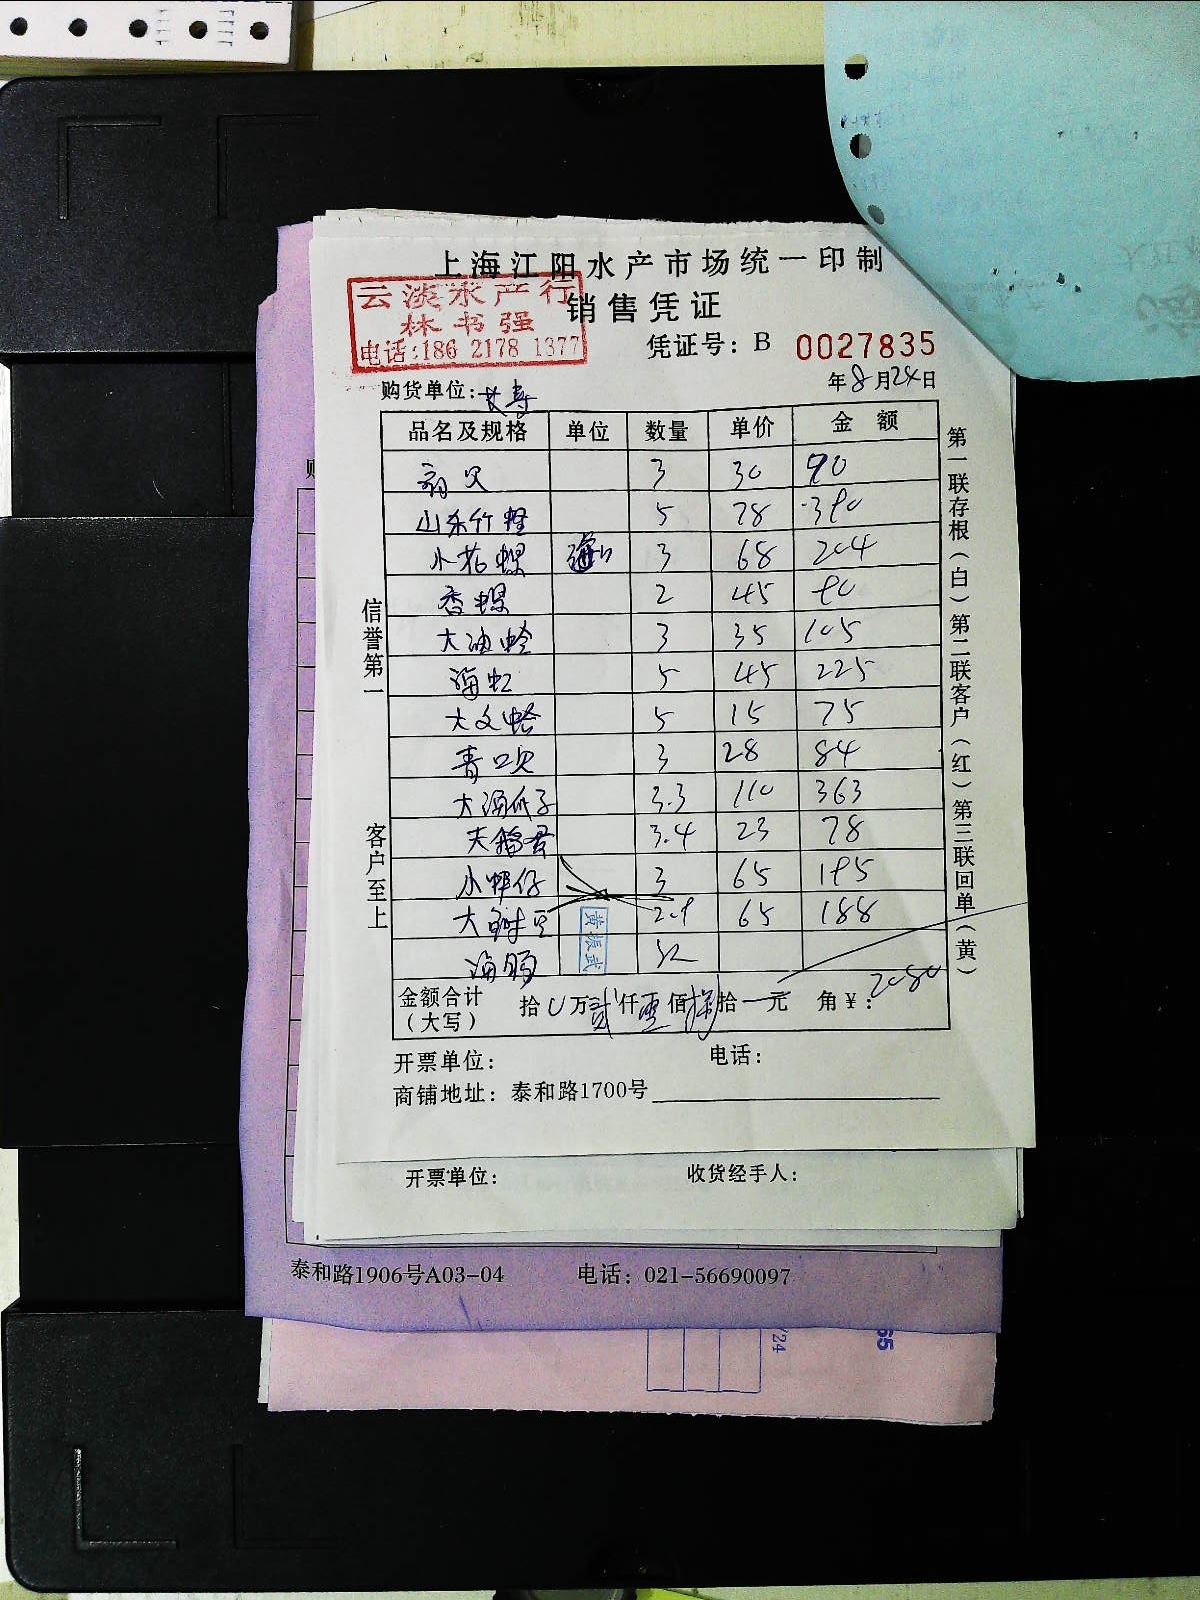 上海江阳水产市场统一印制
云淡水产行
林书强
电话:186 2178 1377
销售凭证
凭证号：B 0027835
购货单位:
年8月24日
品名及规格 单位 数量 单价 金额
3 30 90
山东竹蛏 5 78 390
小花螺 3 68 204
香螺 2 45 90
大油蛤 3 35 105
海虹 5 45 225
大文蛤 5 15 75
青口贝 3 28 84
大海瓜子 3.3 110 363
3.4 23 78
3 65 195
2.9 65 188
海肠
黄振武
金额合计（大写） 拾 0 万 贰 仟 佰 拾 元 角 ¥： 2080
开票单位：
电话：
商铺地址：泰和路1700号
信誉第一
客户至上
第一联存根（白）第二联客户（红）第三联回单（黄）
开票单位：
收货经手人：
泰和路1906号A03-04
电话：021-56690097
/24
65